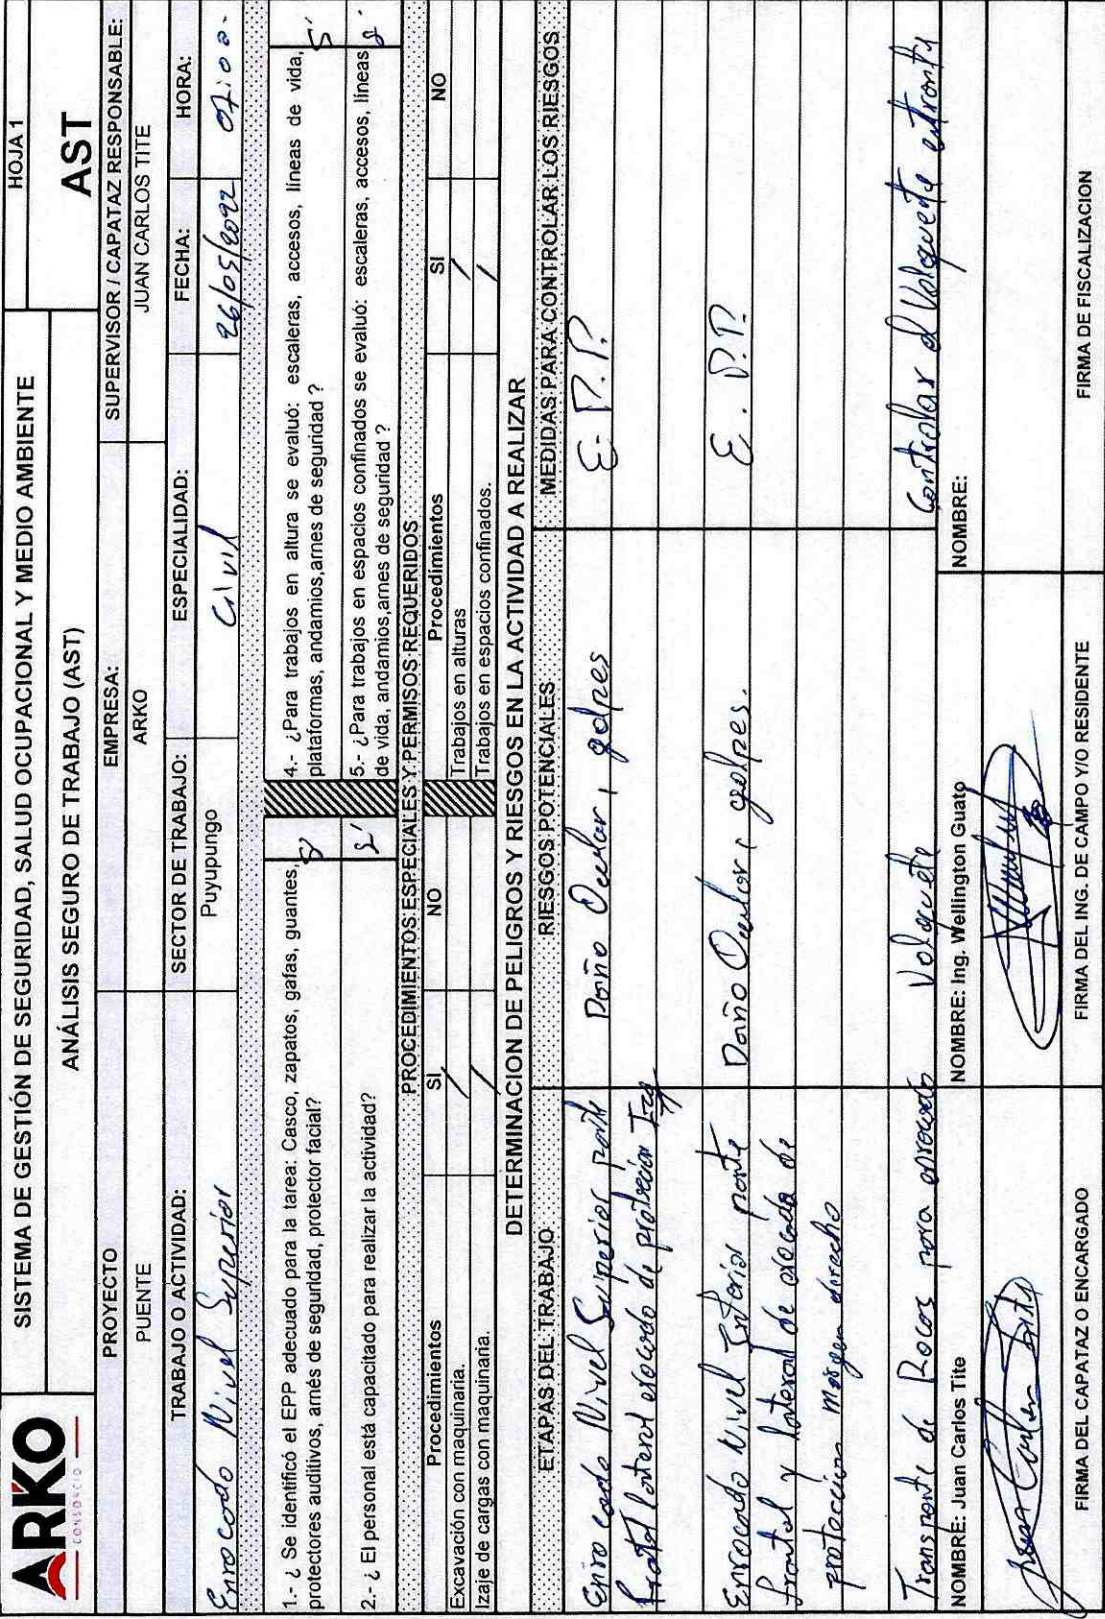 ARKO
CONSORCIO
SISTEMA DE GESTIÓN DE SEGURIDAD, SALUD OCUPACIONAL Y MEDIO AMBIENTE
HOJA 1
ANÁLISIS SEGURO DE TRABAJO (AST)
AST
PROYECTO
EMPRESA:
SUPERVISOR / CAPATAZ RESPONSABLE:
PUENTE
ARKO
JUAN CARLOS TITE
TRABAJO O ACTIVIDAD:
SECTOR DE TRABAJO:
ESPECIALIDAD:
FECHA:
HORA:
Enrocado Nivel Superior
Puyupungo
Civil
26/05/2022
07:00
1.- ¿ Se identificó el EPP adecuado para la tarea: Casco, zapatos, gafas, guantes,
protectores auditivos, arnés de seguridad, protector facial?
Si
4.- ¿Para trabajos en altura se evaluó: escaleras, accesos, líneas de vida,
plataformas, andamios,arnes de seguridad ?
Si
2.- ¿ El personal está capacitado para realizar la actividad?
Si
5.- ¿Para trabajos en espacios confinados se evaluó: escaleras, accesos, líneas
de vida, andamios,arnes de seguridad ?
Si
PROCEDIMIENTOS ESPECIALES Y PERMISOS REQUERIDOS
Procedimientos
SI
NO
Procedimientos
SI
NO
Excavación con maquinaria.
/
Trabajos en alturas
/
Izaje de cargas con maquinaria.
/
Trabajos en espacios confinados.
/
DETERMINACION DE PELIGROS Y RIESGOS EN LA ACTIVIDAD A REALIZAR
ETAPAS DEL TRABAJO
RIESGOS POTENCIALES
MEDIDAS PARA CONTROLAR LOS RIESGOS
Enrocado Nivel Superior parte
Daño Ocular, golpes
E.P.P.
lateral de protección Izq
Enrocado Nivel Inferior parte
Daño Ocular, golpes.
E.P.P.
frontal y lateral de de
protección margen derecho
Transporte de Rocas para enrocado
Volquete
Controlar el Volquete
NOMBRE: Juan Carlos Tite
NOMBRE: Ing. Wellington Guato
NOMBRE:
Juan Carlos Tite
FIRMA DEL CAPATAZ O ENCARGADO
FIRMA DEL ING. DE CAMPO Y/O RESIDENTE
FIRMA DE FISCALIZACION